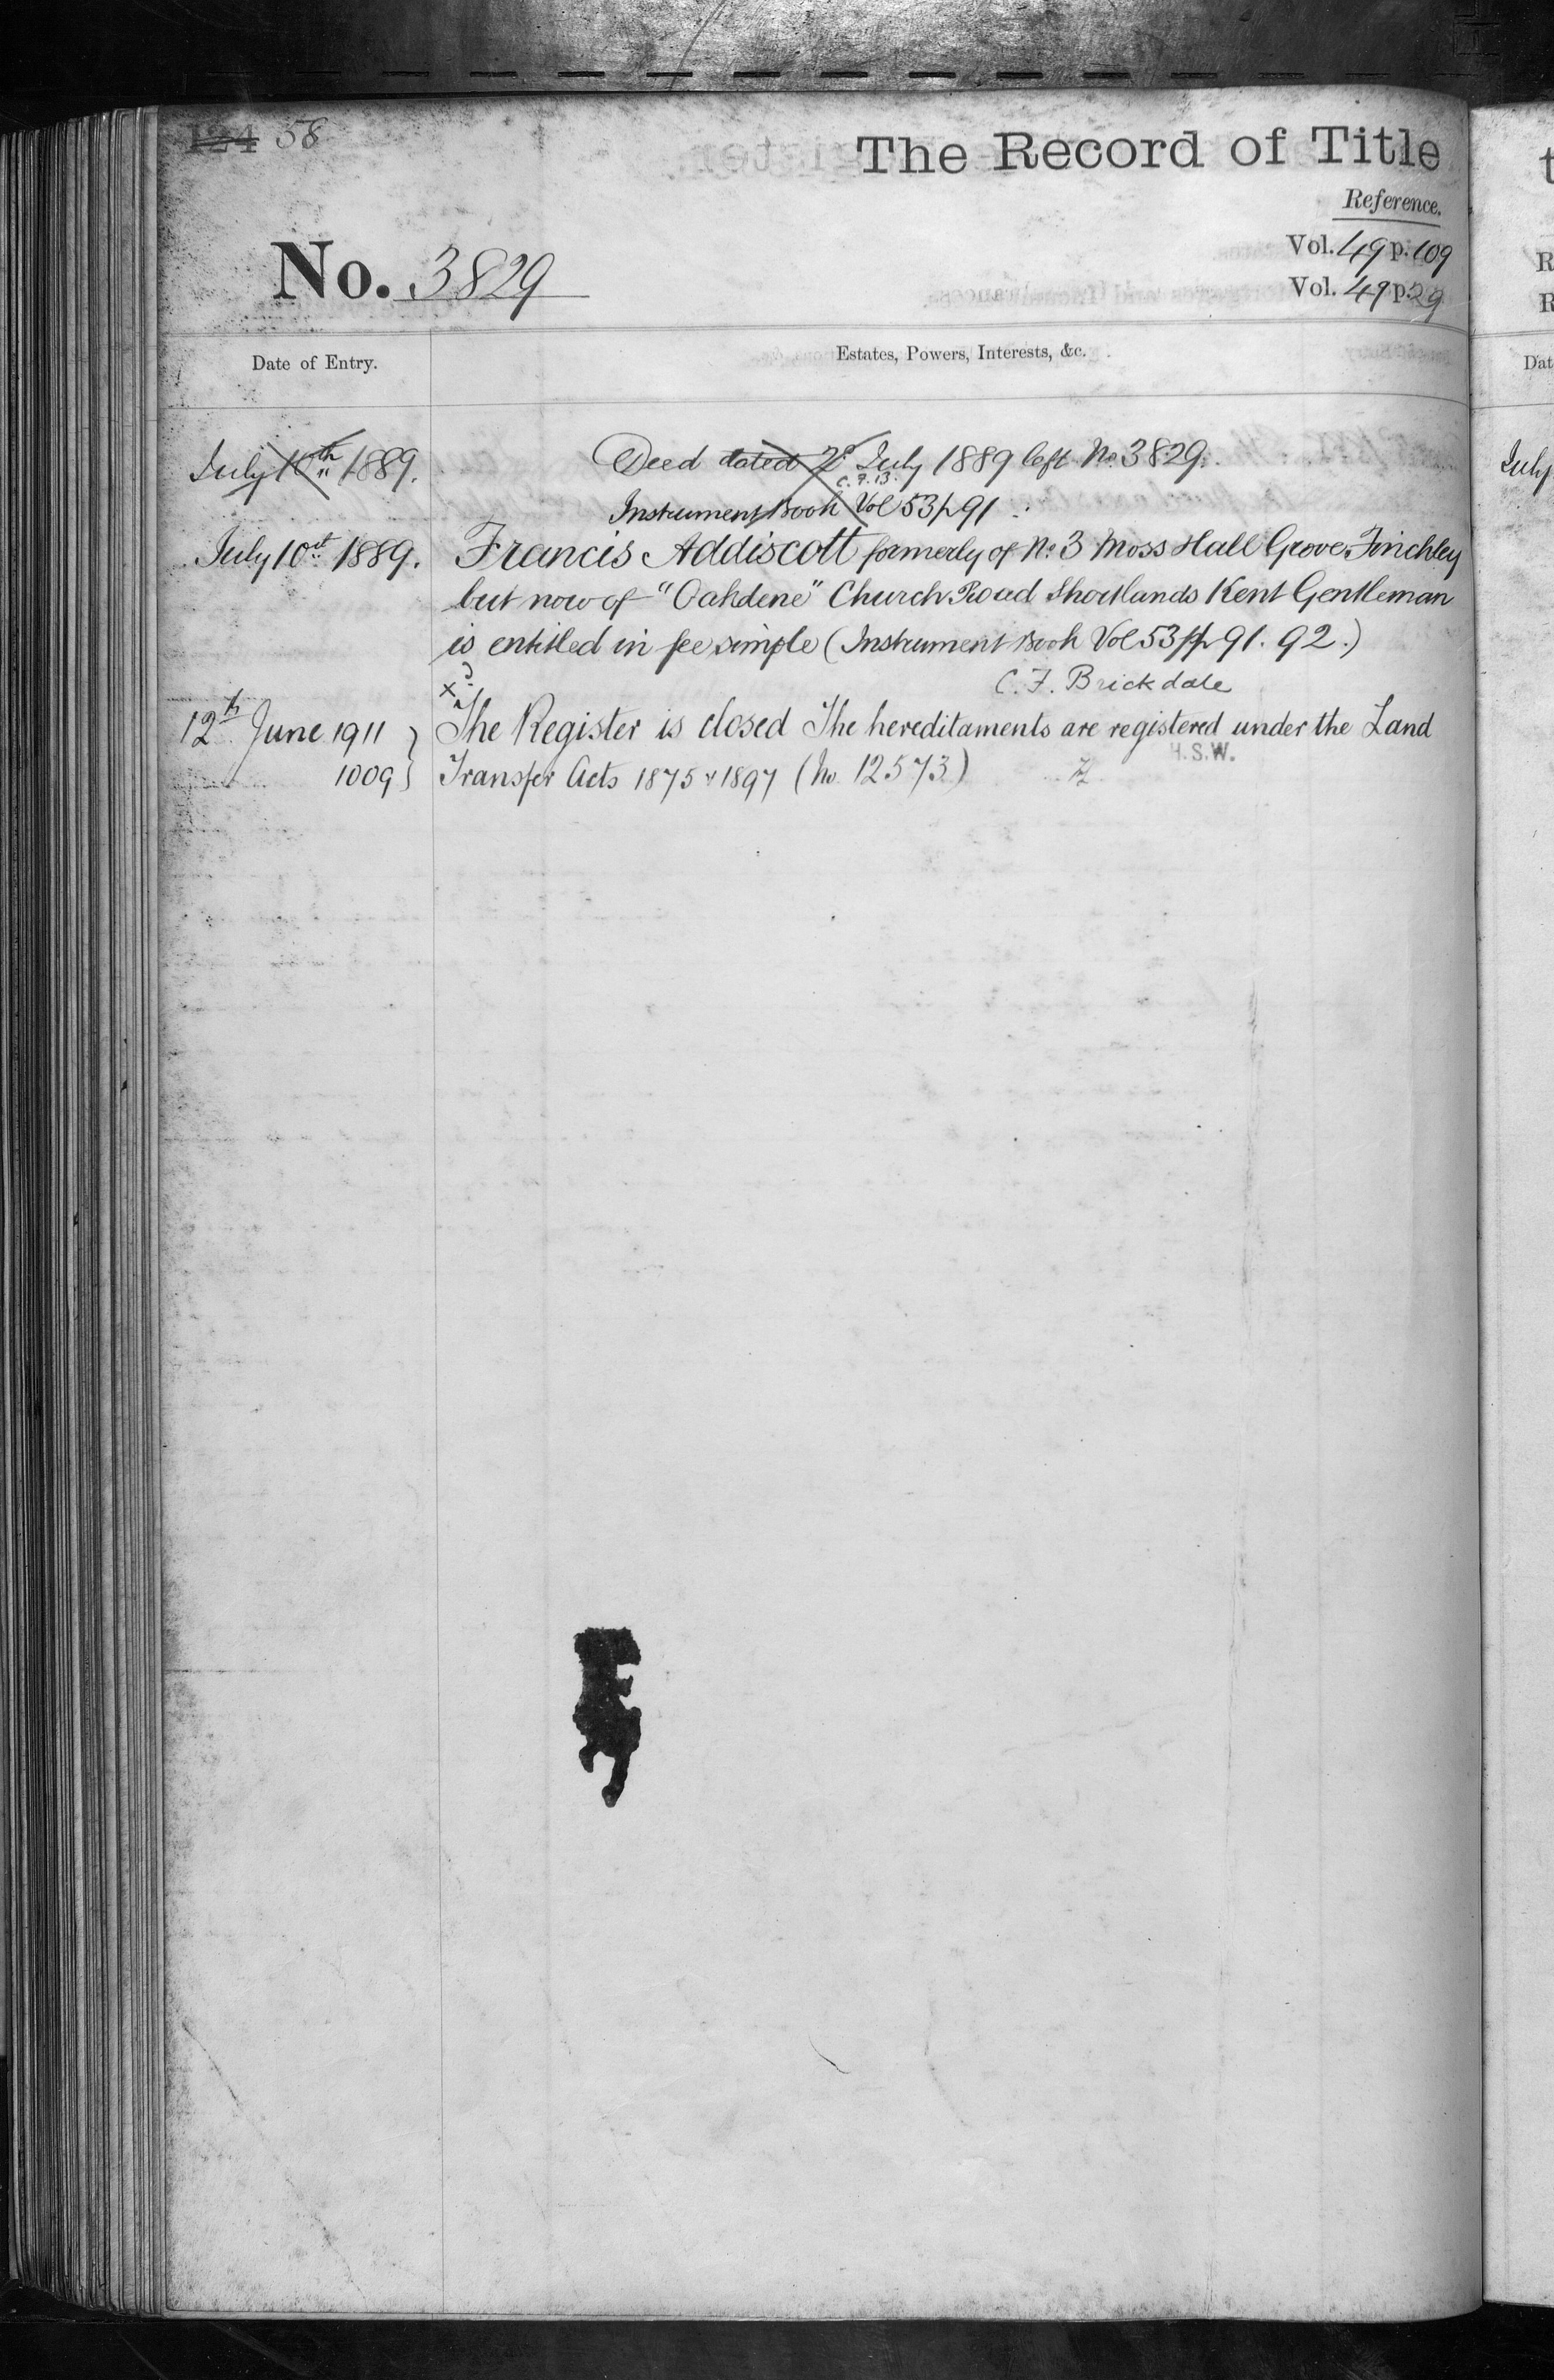 124 58
The Record of Title
Reference.
No. 3829
Vol. 49 p. 109
Vol. 49 p. 29
Date of Entry.
Estates, Powers, Interests, &c.
July 10th 1889.
Deed dated 2d July 1889 left No. 3829.
Instrument Book Vol 53 p 91
July 10th 1889.
Francis Addiscott formerly of No. 3 Moss Hall Grove Finchley
but now of "Oakdene" Church Road Shortlands Kent Gentleman
is entitled in fee simple (Instrument Book Vol 53 pp 91. 92.)
C. F. Brickdale
12th June 1911
The Register is closed The hereditaments are registered under the Land
H.S.W.
1009
Transfer Acts 1875 & 1897 (No. 12573)
Dat
July